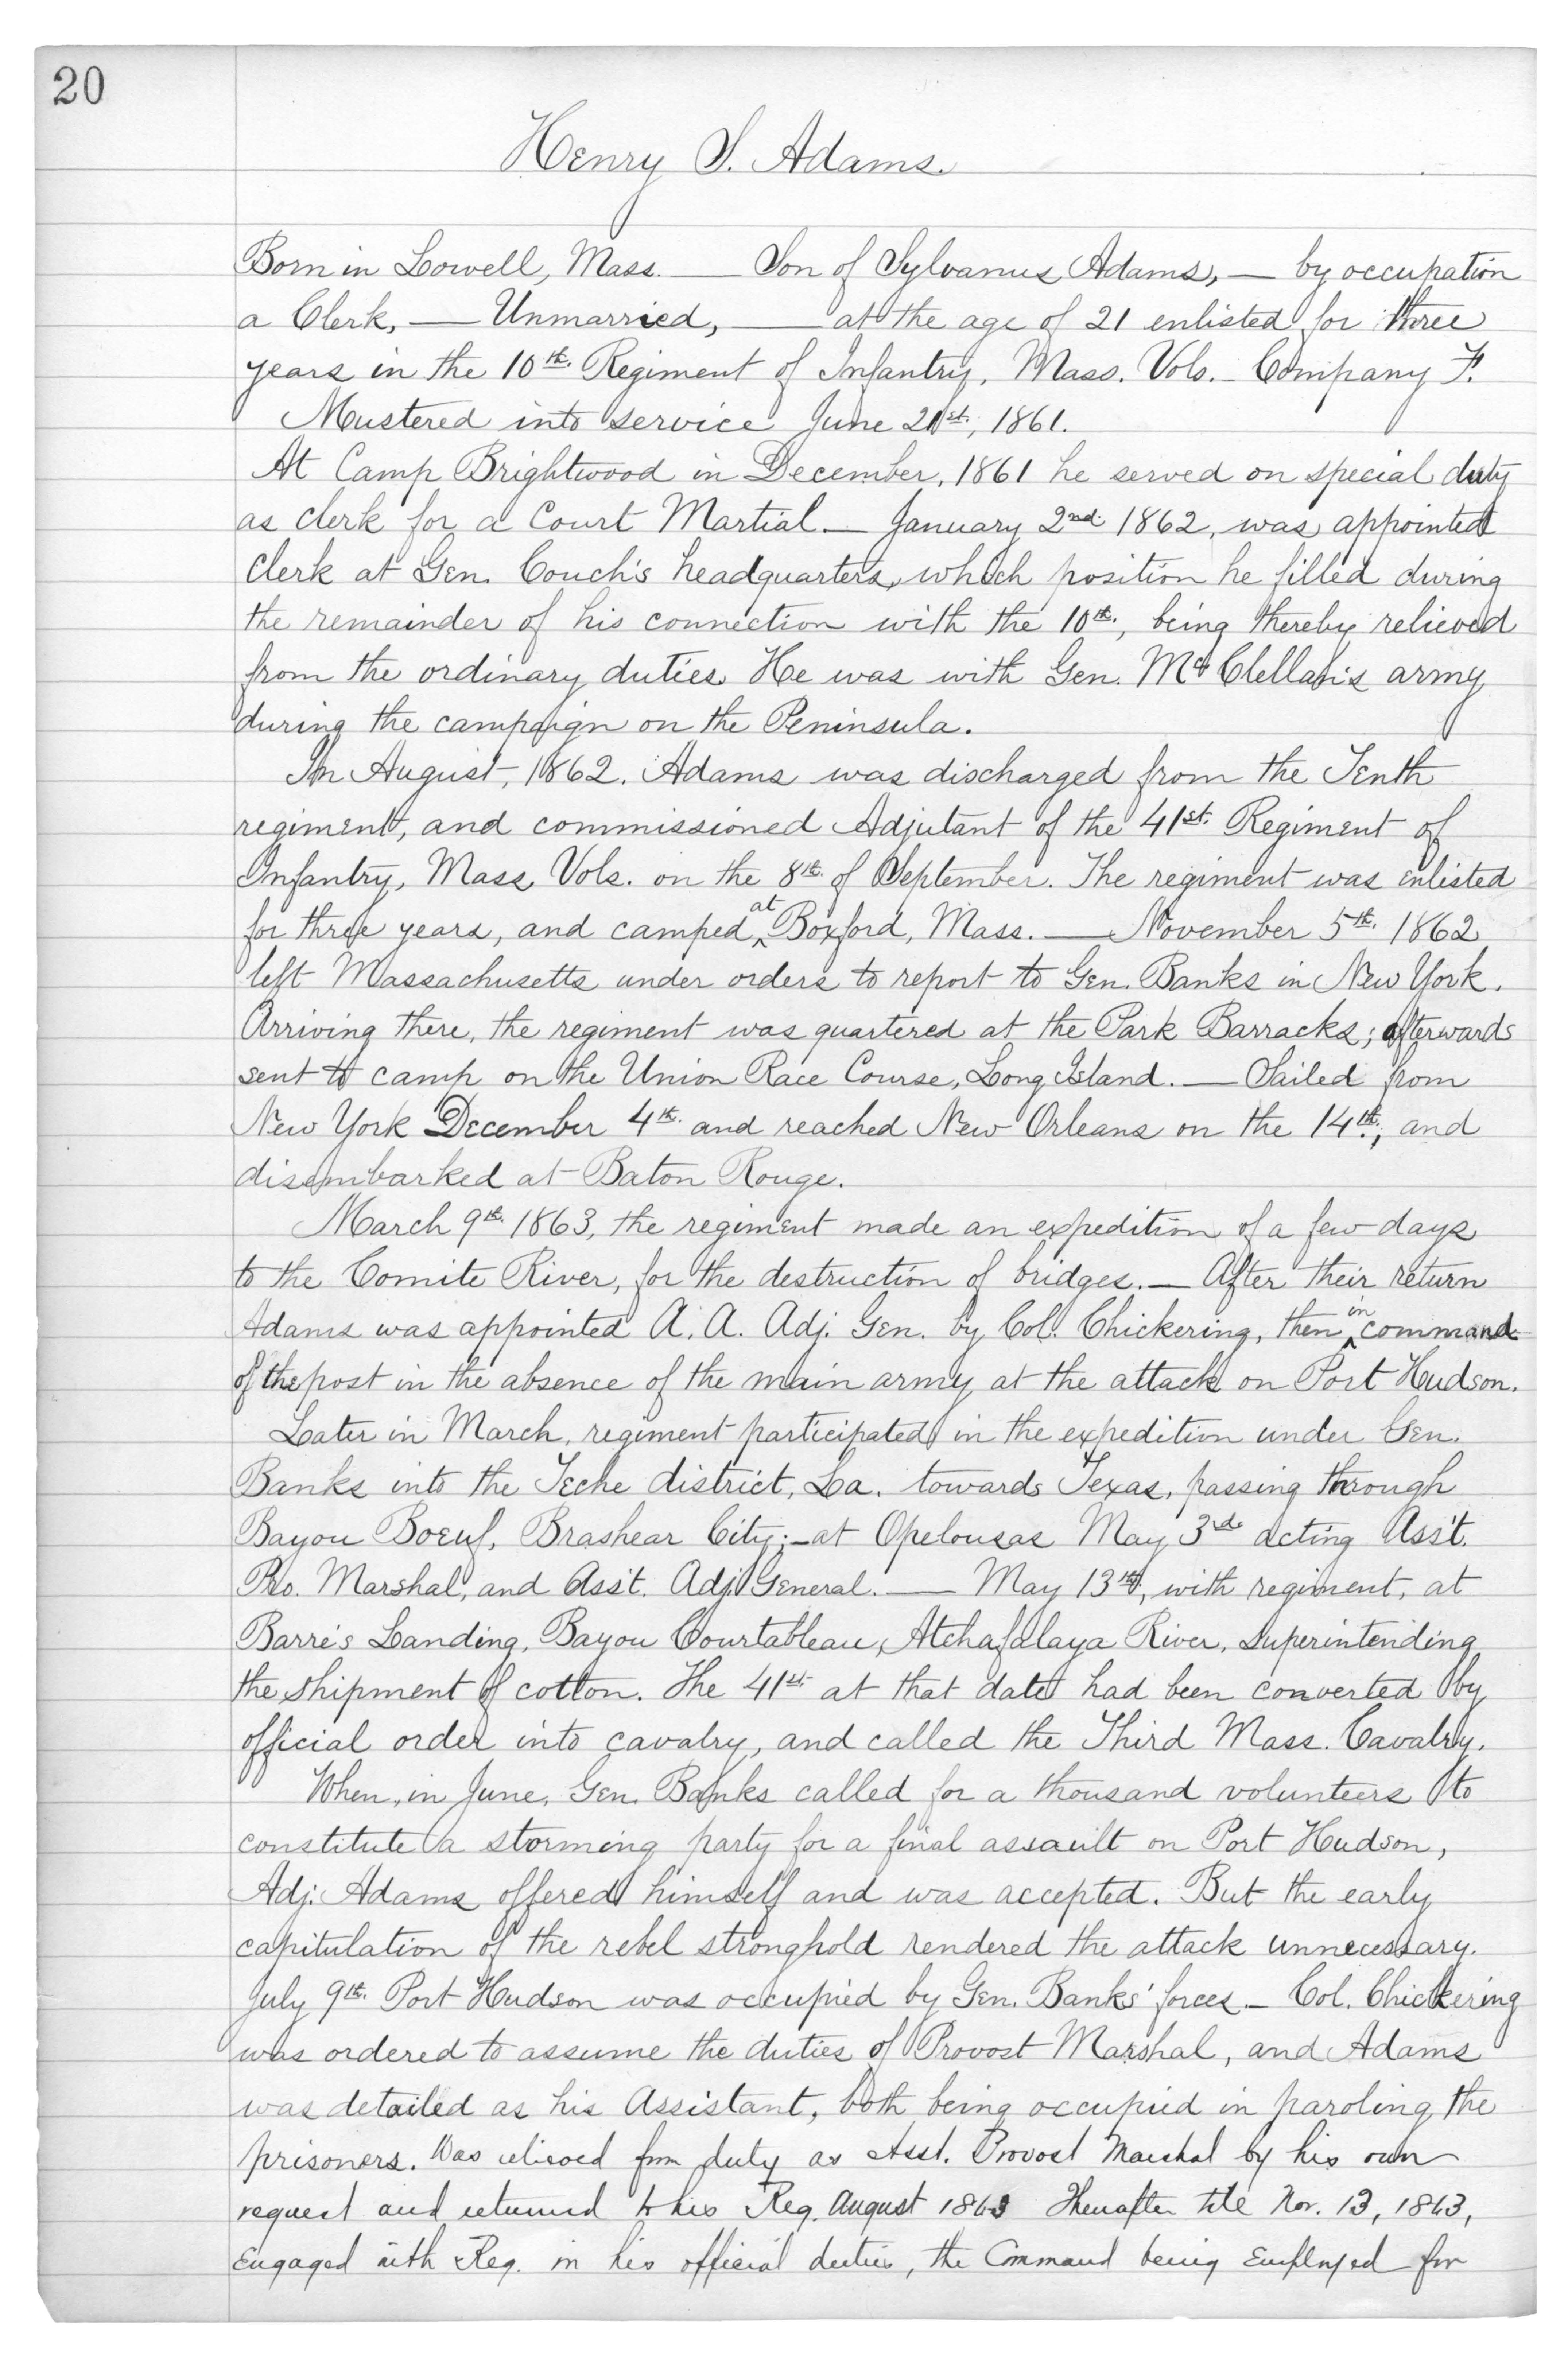 20
Henry S. Adams.
Born in Lowell, Mass. — Son of Sylvanus Adams, — by occupation
a Clerk, — Unmarried, — at the age of 21 enlisted for three
years in the 10th. Regiment of Infantry, Mass. Vols. – Company F.
Mustered into service June 21st, 1861.
At Camp Brightwood in December, 1861 he served on special duty
as clerk for a Court Martial. — January 2nd. 1862, was appointed
Clerk at Gen. Couch's headquarters, which position he filled during
the remainder of his connection with the 10th., being thereby relieved
from the ordinary duties. He was with Gen. McClellan's army
during the campaign on the Peninsula.
In August, 1862. Adams was discharged from the Tenth
regiment, and commissioned Adjutant of the 41st. Regiment of
Infantry, Mass. Vols. on the 8th. of September. The regiment was enlisted
for three years, and camped at Boxford, Mass. — November 5th. 1862
left Massachusetts under orders to report to Gen. Banks in New York.
Arriving there, the regiment was quartered at the Park Barracks; afterwards
sent to camp on the Union Race Course, Long Island. — Sailed from
New York December 4th. and reached New Orleans on the 14th., and
disembarked at Baton Rouge.
March 9th. 1863, the regiment made an expedition of a few days
to the Comite River, for the destruction of bridges. — After their return
Adams was appointed A. A. Adj. Gen. by Col. Chickering, then in command
of the post in the absence of the main army at the attack on Port Hudson.
Later in March, regiment participated in the expedition under Gen.
Banks into the Teche district, La. towards Texas, passing through
Bayou Boeuf, Brashear City; – at Opelousas May 3rd. acting Ass't.
Pro. Marshal, and Ass't. Adj. General. — May 13th, with regiment, at
Barre's Landing, Bayou Courtableau, Atchafalaya River, superintending
the shipment of cotton. The 41st. at that date had been converted by
official order into cavalry, and called the Third Mass. Cavalry.
When, in June, Gen. Banks called for a thousand volunteers to
constitute a storming party for a final assault on Port Hudson,
Adj. Adams offered himself and was accepted. But the early
capitulation of the rebel stronghold rendered the attack unnecessary.
July 9th. Port Hudson was occupied by Gen. Banks' forces. – Col. Chickering
was ordered to assume the duties of Provost Marshal, and Adams
was detailed as his Assistant, both being occupied in paroling the
prisoners. Was relieved from duty as Asst. Provost Marshal by his own
request and returned to his Reg. August 1863 Thereafter till Nov. 13, 1863,
Engaged with Reg. in his official duties, the Command being Employed for